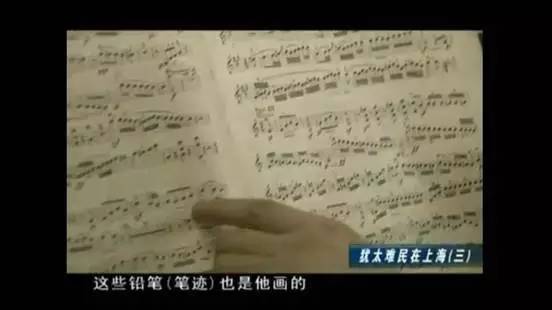 犹太难民在上海(三)
这些铅笔(笔迹)也是他画的